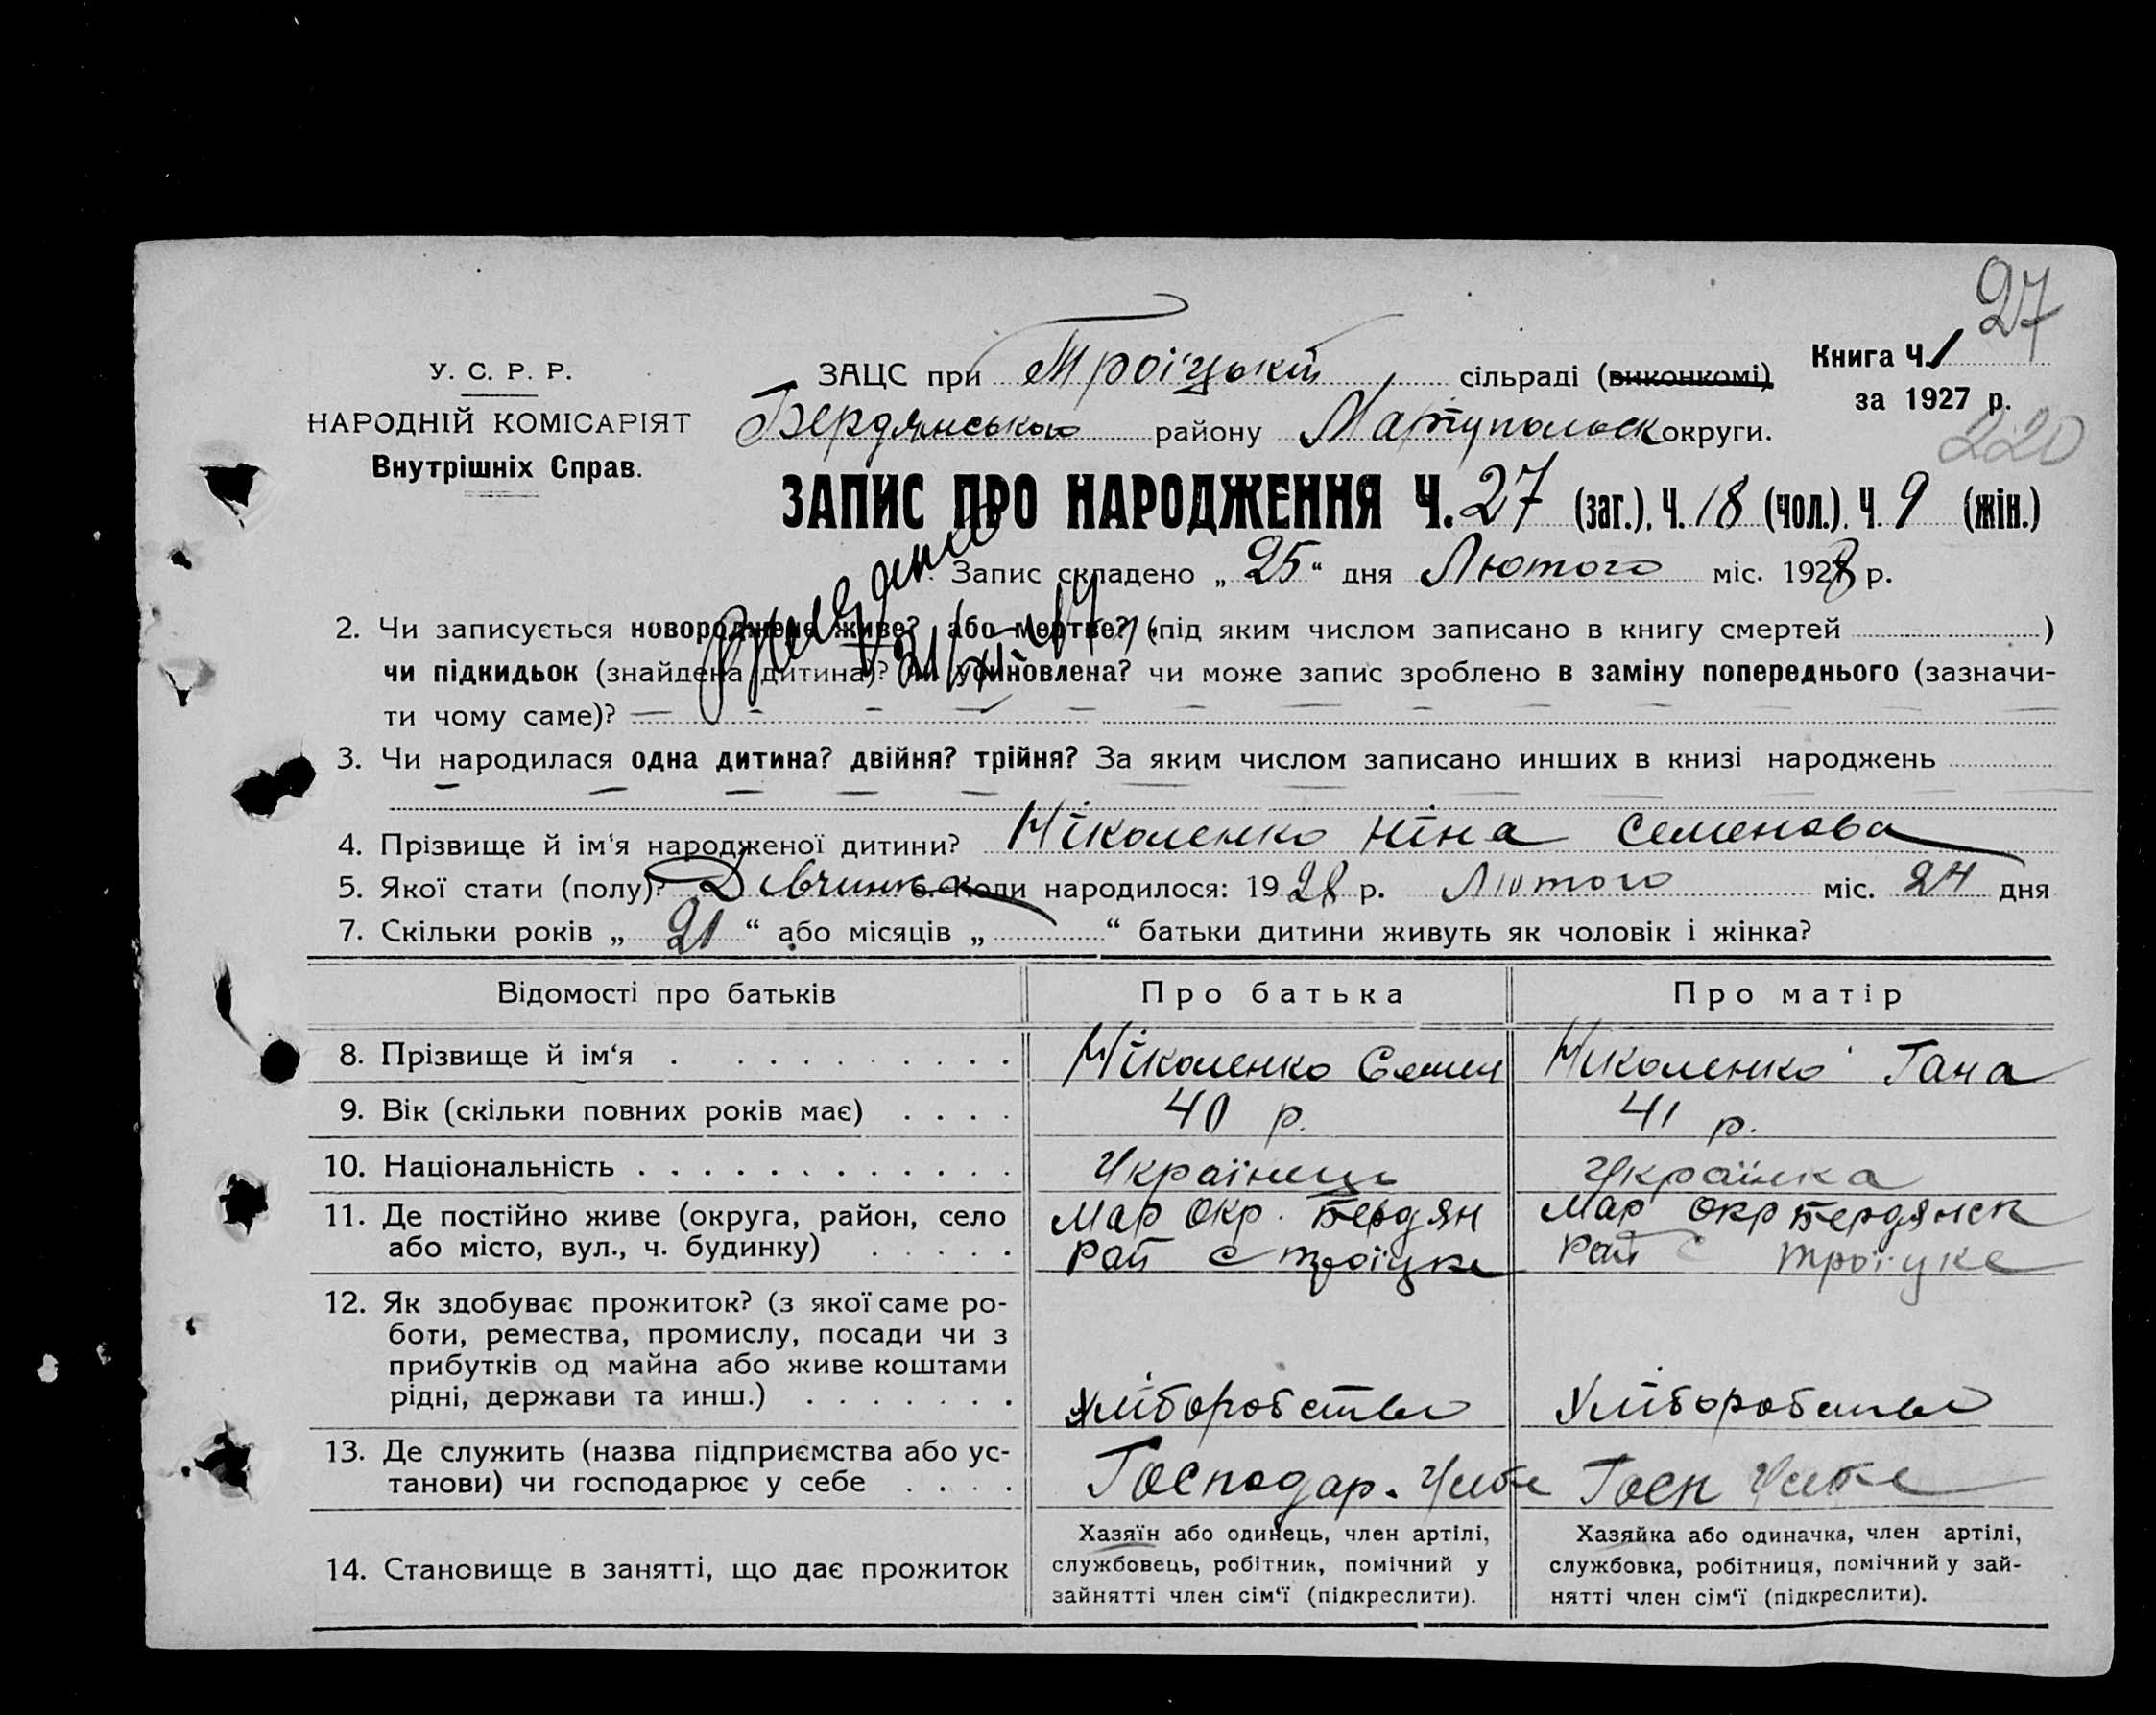 27
У. С. Р. Р.
НАРОДНІЙ КОМІСАРІЯТ
Внутрішніх Справ.
ЗАЦС при Троіцькій сільраді (виконкомі)
Бердянського району Маріупольськ округи.
Книга Ч. 1
за 1927 р.
220
ЗАПИС ПРО НАРОДЖЕННЯ Ч. 27 (заг.), Ч. 18 (чол.). Ч. 9 (жін.)
Запис складено „ 25 “ дня Лютого міс. 1928 р.
2. Чи записується новороджене живе? або мертве? (під яким числом записано в книгу смертей )
чи підкидьок (знайдена дитина)? чи усиновлена? чи може запис зроблено в заміну попереднього (зазначи-
ти чому саме)?
3. Чи народилася одна дитина? двійня? трійня? За яким числом записано инших в книзі народжень
4. Прізвище й ім‘я народженої дитини? Ніколенко Ніна Семенова
5. Якої стати (полу)? Дівчинка 6. Коли народилося: 1928 р. Лютого міс. 24 дня
7. Скільки років „ 21 “ або місяців „ “ батьки дитини живуть як чоловік і жінка?
Відомості про батьків Про батька Про матір
8. Прізвище й ім‘я Ніколенко Семен Николенко Гана
9. Вік (скільки повних років має) 40 р. 41 р.
10. Національність Українець Українка
11. Де постійно живе (округа, район, село Мар Окр. Бердян Мар Окр Бердянск
або місто, вул., ч. будинку) Рай с Троїцке Рай с Троїцке
12. Як здобуває прожиток? (з якої саме ро-
боти, ремества, промислу, посади чи з
прибутків од майна або живе коштами
рідні, держави та инш.) Хліборобство Хліборобство
13. Де служить (назва підприємства або ус-
танови) чи господарює у себе Господар. Усебе Госп Усебе
14. Становище в занятті, що дає прожиток
Хазяїн або одинець, член артілі,
службовець, робітник, помічний у
зайнятті член сім‘ї (підкреслити).
Хазяйка або одиначка, член артілі,
службовка, робітниця, помічний у зай-
нятті член сім‘ї (підкреслити).